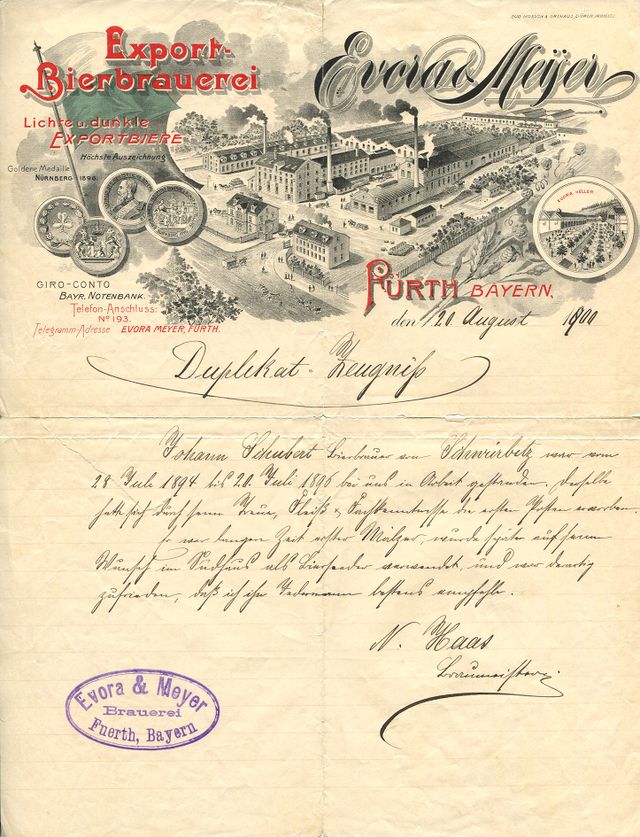 Export-
Bierbrauerei
Evora & Meyer
Lichte u. dunkle
EXPORTBIERE
Höchste Auszeichnung
Goldene Medaille
NÜRNBERG 1896.
EVORA KELLER
GIRO-CONTO
BAYR. NOTENBANK.
Telefon-Anschluss:
No 193.
Telegramm-Adresse EVORA MEYER, FÜRTH.
FÜRTH BAYERN,
den 20. August 1900
Duplikat-Zeugniß
Johann Schubert Bierbrauer von war vom
28 Jule 1894 bis 20. Juli 1896 bei uns in Arbeit gestanden. Derselbe
hat sich durch seine Treue, Fleiß & Fachkenntnisse die ersten Posten erworben.
Er war langen Zeit erster Mälzer, wurde später auf seinen
Wunsch im Sudhaus als Biersieder verwendet, und war derartig
zufrieden, daß ich ihn Jedermann bestens empfehle.
N. Haas
Braumeister.
Evora & Meyer
Brauerei
Fuerth, Bayern